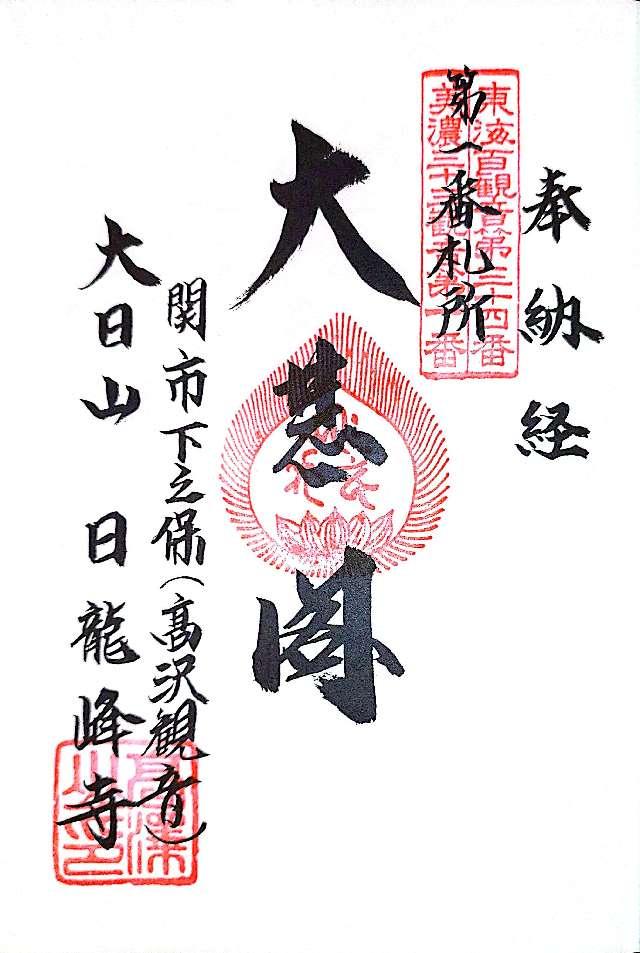 奉納経
東海百観音第三十四番
美濃三十三観音第一番
第一番札所
大悲閣
関市下之保（高沢観音）
大日山 日龍峰寺